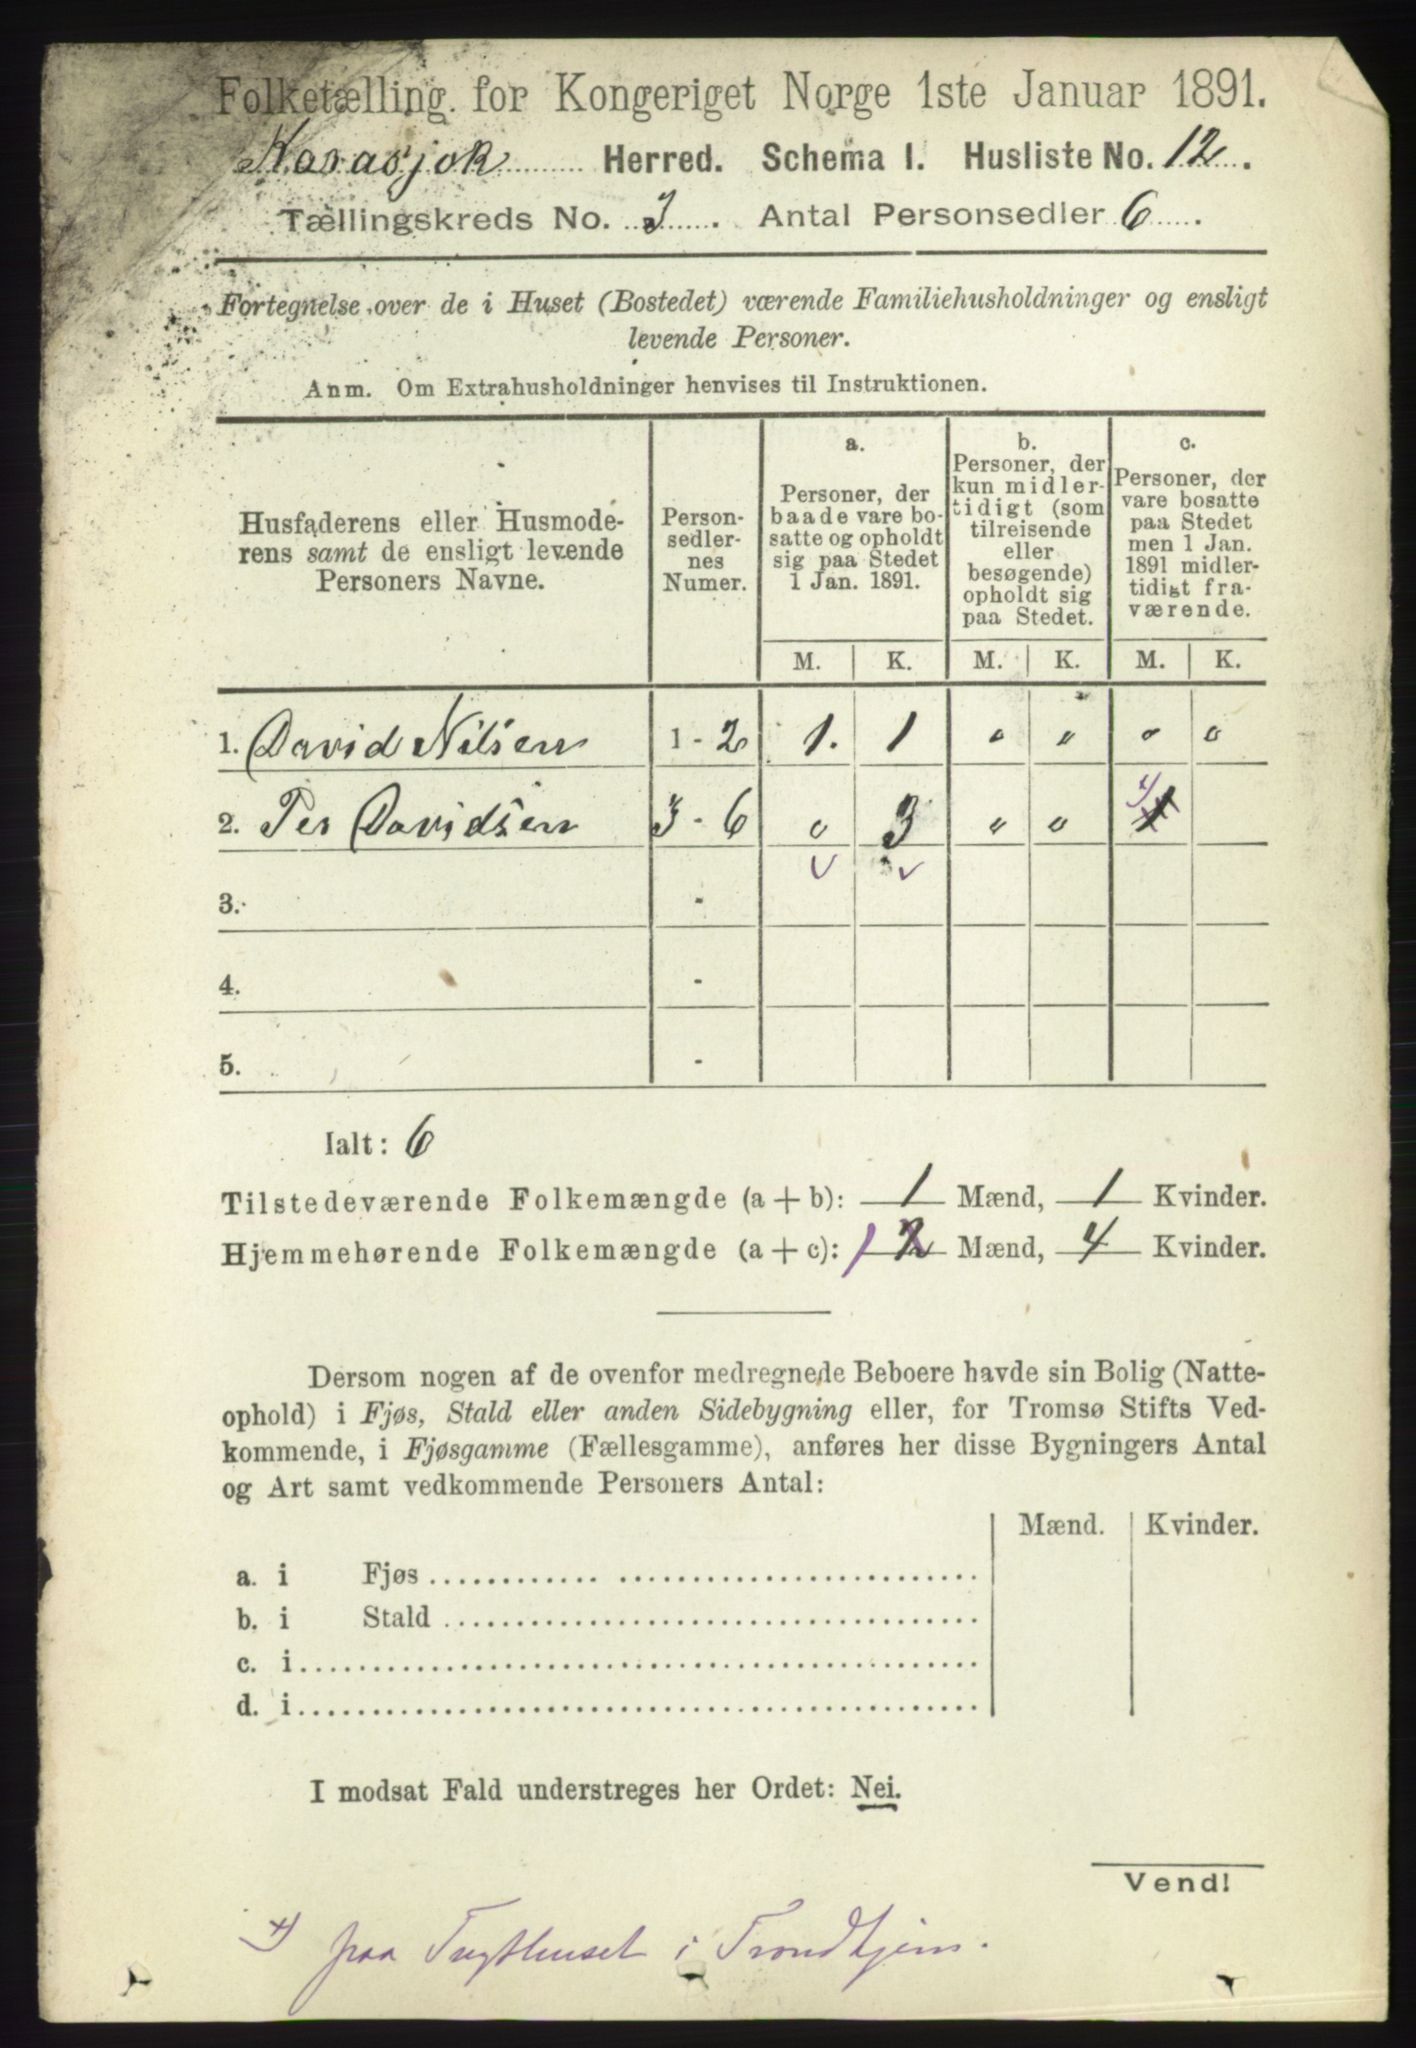 Folketælling for Kongeriget Norge 1ste Januar 1891.
Karasjok Herred. Schema I. Husliste No. 12.
Tællingskreds No. 3. Antal Personsedler 6.
Fortegnelse over de i Huset (Bostedet) værende Familiehusholdninger og ensligt
levende Personer.
Anm. Om Extrahusholdninger henvises til Instruktionen.
Husfaderens eller Husmode-
rens samt de ensligt levende
Personers Navne.
Person-
sedler-
nes
Numer.
a.
Personer, der
baade vare bo-
satte og opholdt
sig paa Stedet
1 Jan. 1891.
b.
Personer, der
kun midler-
tidigt (som
tilreisende
eller
besøgende)
opholdt sig
paa Stedet.
c.
Personer, der
vare bosatte
paa Stedet
men 1 Jan.
1891 midler-
tidigt fra-
værende.
M. K. M. K. M. K.
1. David Nilsen 1 - 2 1. 1 " " " "
2. Per Davidsen 3 - 6 " 3 " " 1
3. -
4. -
5. -
Ialt: 6
Tilstedeværende Folkemængde (a + b): 1 Mænd, 1 Kvinder.
Hjemmehørende Folkemængde (a + c): 1 2 Mænd, 4 Kvinder.
Dersom nogen af de ovenfor medregnede Beboere havde sin Bolig (Natte-
ophold) i Fjøs, Stald eller anden Sidebygning eller, for Tromsø Stifts Ved-
kommende, i Fjøsgamme (Fællesgamme), anføres her disse Bygningers Antal
og Art samt vedkommende Personers Antal:
Mænd. Kvinder.
a. i Fjøs
b. i Stald
c. i
d. i
I modsat Fald understreges her Ordet: Nei.
Vend!
x) paa Tugthuset i Trondhjem.